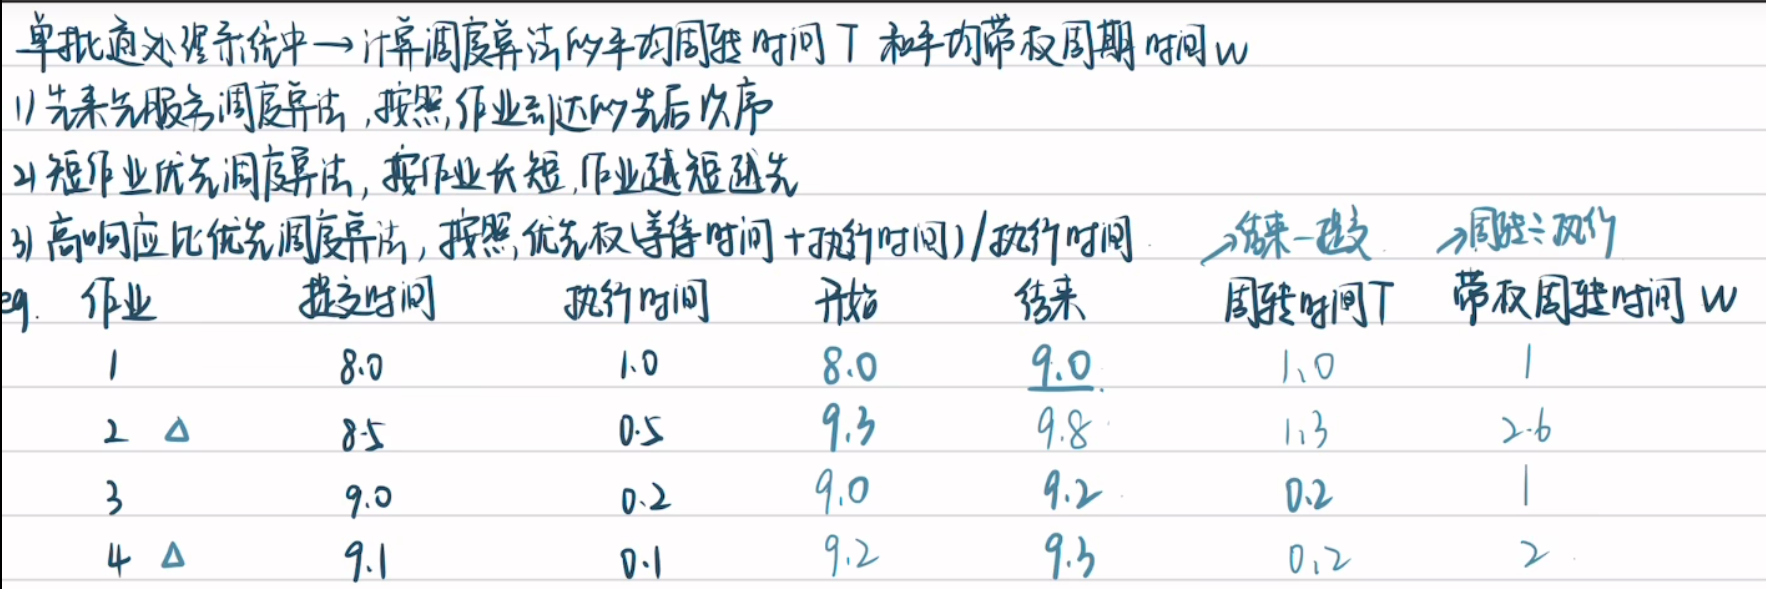 单批道处理系统中→计算调度算法的平均周转时间T 和平均带权周期时间W
1) 先来先服务调度算法,按照,作业到达的先后次序
2) 短作业优先调度算法,按作业长短,作业越短越先
3) 高响应比优先调度算法,按照,优先权(等待时间+执行时间)/执行时间 →结束-提交 →周转÷执行
eg. 作业 提交时间 执行时间 开始 结束 周转时间T 带权周转时间 W
1 8.0 1.0 8.0 9.0 1.0 1
2 △ 8.5 0.5 9.3 9.8 1.3 2.6
3 9.0 0.2 9.0 9.2 0.2 1
4 △ 9.1 0.1 9.2 9.3 0.2 2